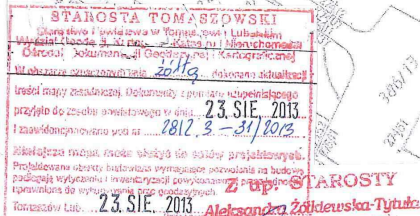 STAROSTA TOMASZOWSKI
Starostwo Powiatowe w Tomaszowie Lubelskim
Wydział Geodezji, Katastru i Nieruchomości
Ośrodek Dokumentacji Geodezyjnej i Kartograficznej
W obszarze oznaczonym linią żółtą dokonano aktualizacji
treści mapy zasadniczej. Dokumenty z pomiaru uzupełniającego
przyjęto do zasobu powiatowego w dniu 23. SIE. 2013
i zaewidencjonowano pod nr 2812.3-31/2013
Niniejsza mapa może służyć do celów projektowych.
Projektowane obiekty budowlane wymagające pozwolenia na budowę
podlegają wytyczeniu i inwentaryzacji powykonawczej
uprawnione do wykonywania prac geodezyjnych.
Z up. STAROSTY
Tomaszów Lub. 23. SIE. 2013 Aleksandra Żółkiewska-Tytuła
386/13